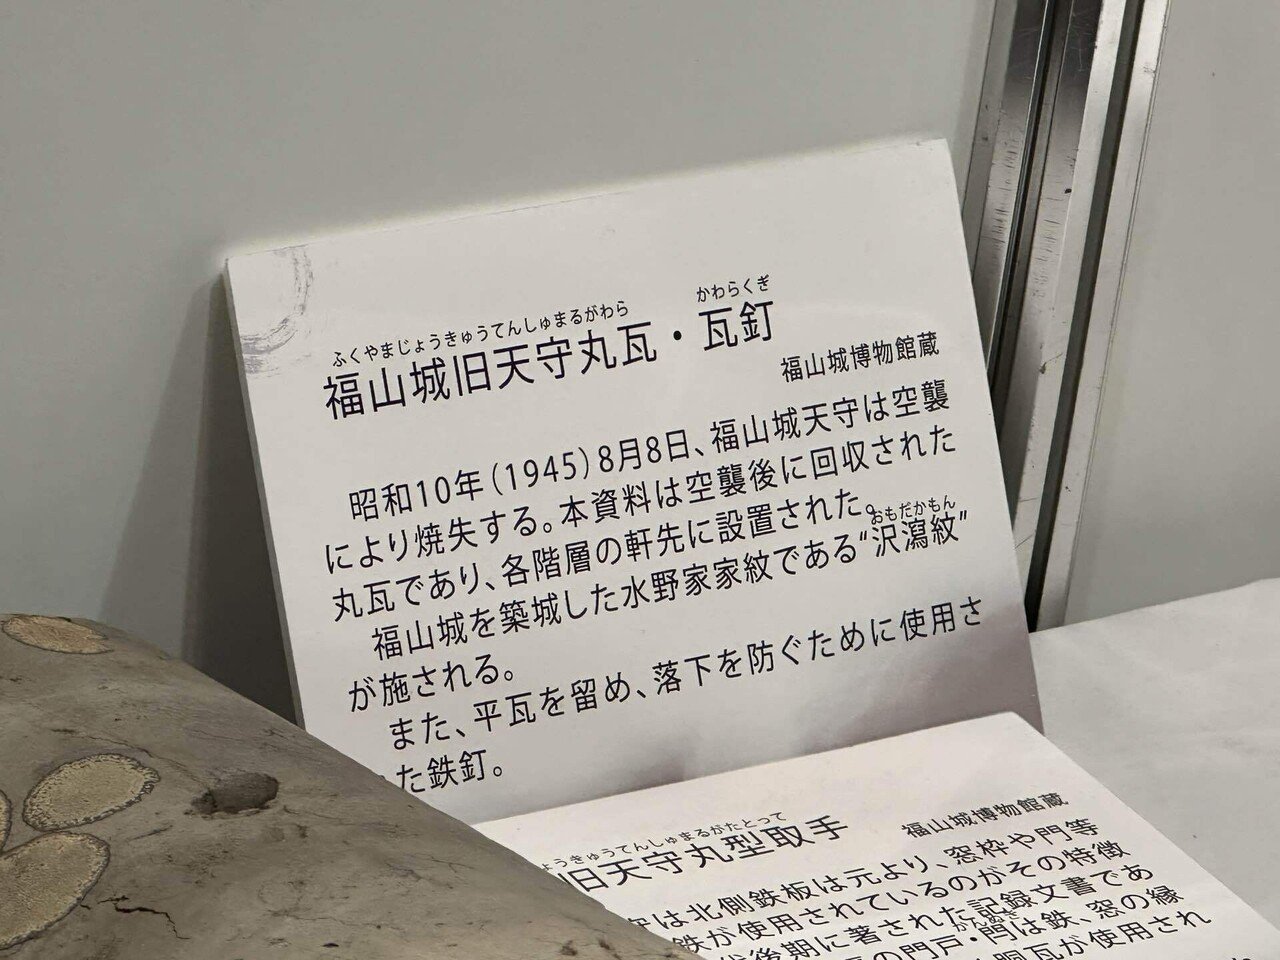 ふくやまじょうきゅうてんしゅまるがわら かわらくぎ
福山城旧天守丸瓦・瓦釘
福山城博物館蔵
昭和10年(1945)8月8日、福山城天守は空襲
により焼失する。本資料は空襲後に回収された
丸瓦であり、各階層の軒先に設置された。
おもだかもん
福山城を築城した水野家家紋である“沢瀉紋”
が施される。
また、平瓦を留め、落下を防ぐために使用さ
た鉄釘。
ょうきゅうてんしゅまるがたとって
旧天守丸型取手
福山城博物館蔵
は北側鉄板は元より、窓枠や門等
鉄が使用されているのがその特徴
代後期に著された記録文書であ
の門戸・門は鉄、窓の縁
銅瓦が使用され